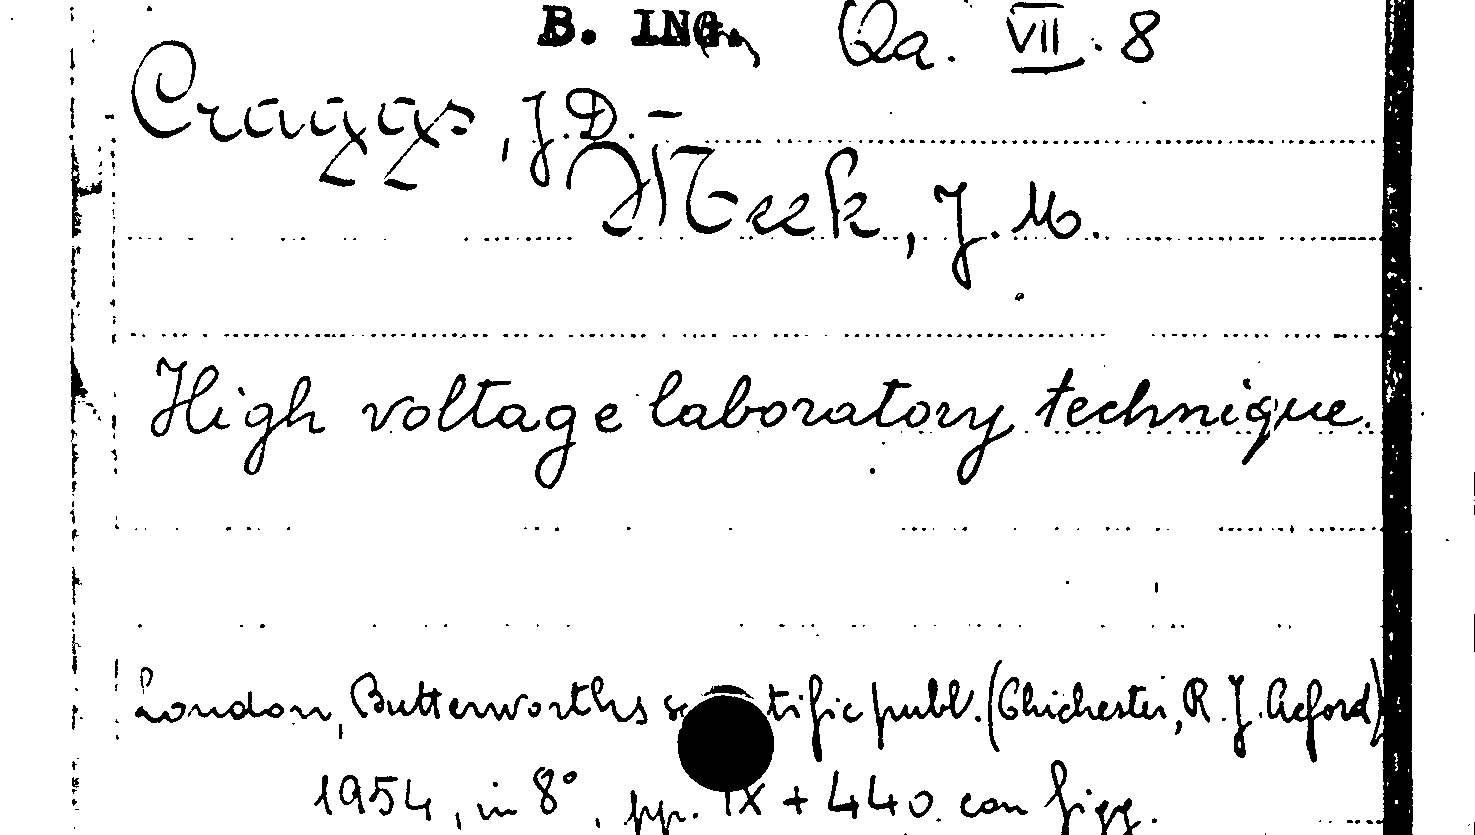 B. ING. Qa. VII. 8
Craggs, J.D. -
Meek, J. M.
High voltage laboratory technique.
London, Butterworths scientific publ. (Chichester, R. J. Acford)
1954, in 8°, pp. IX + 440 con figg.